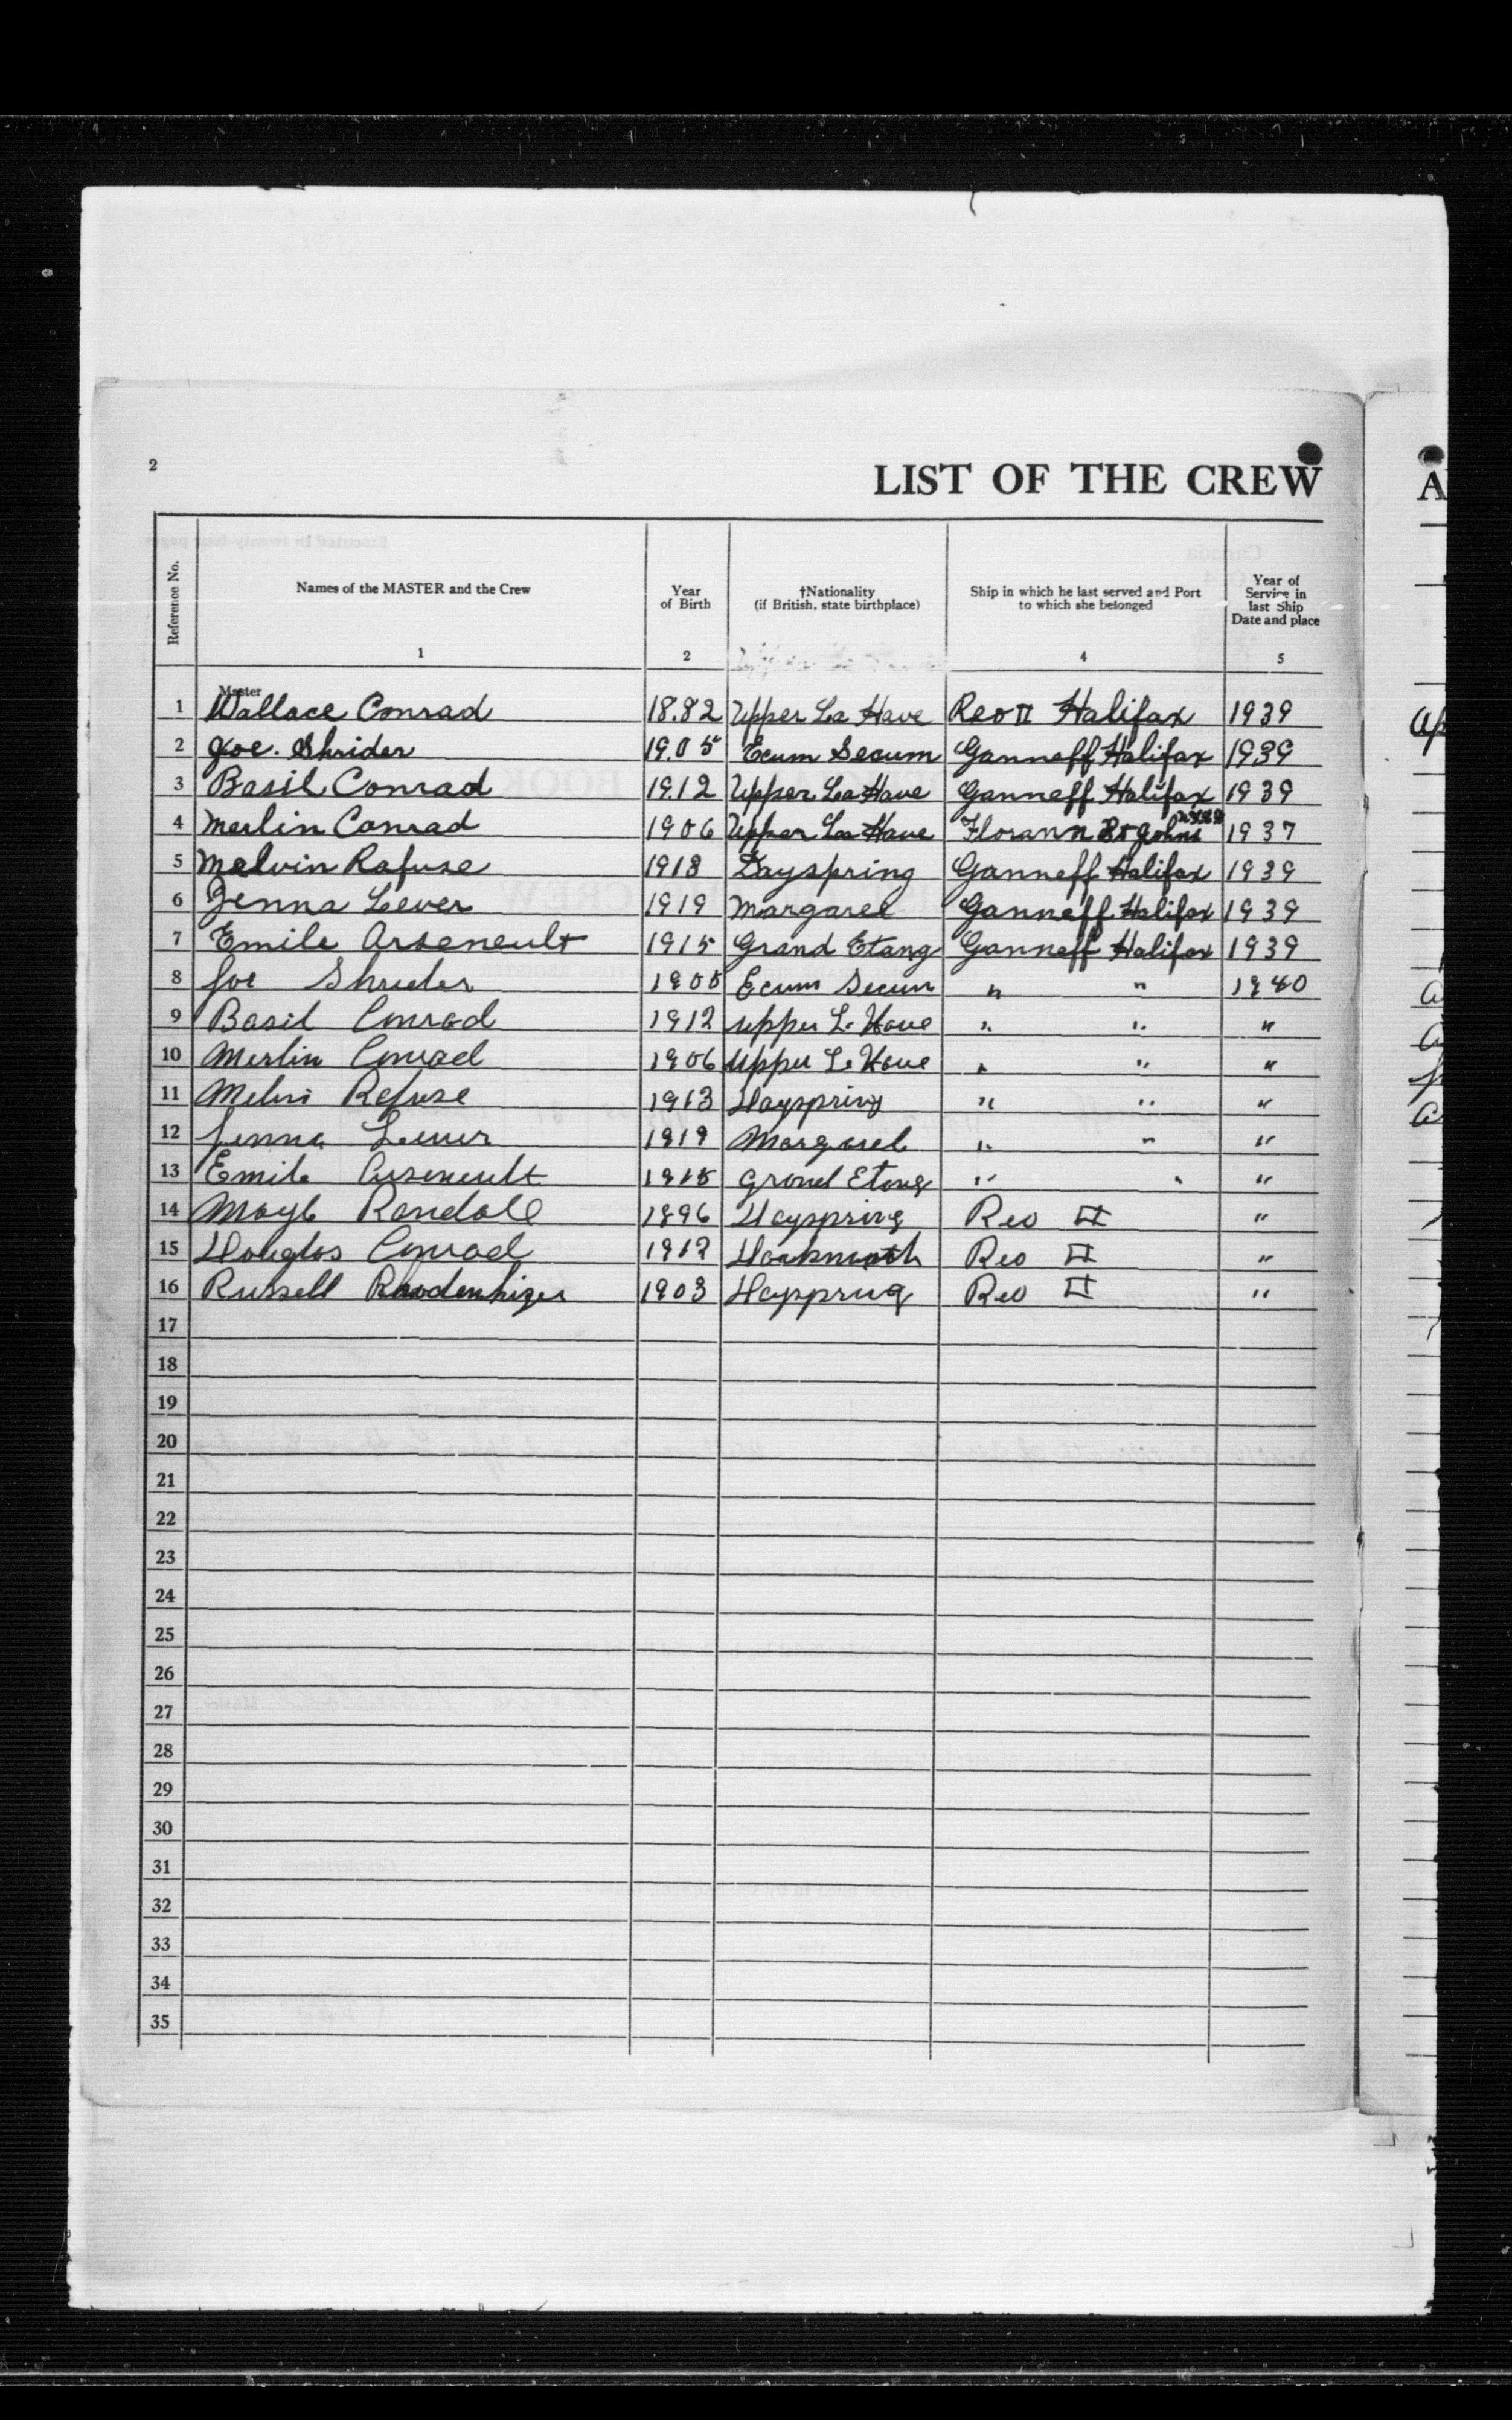 2
LIST OF THE CREW
A
Reference No.
Names of the MASTER and the Crew
Year of Birth
†Nationality (if British, state birthplace)
Ship in which he last served and Port to which she belonged
Year of Service in last Ship Date and place
1 2 4 5
Master
1 Wallace Conrad 18.82 Upper La Have Reo II Halifax 1939
2 Joe. Shrider 19.05 Ecum Secum Ganneff Halifax 1939
3 Basil Conrad 1912 Upper La Have Ganneff Halifax 1939
4 Merlin Conrad 1906 Upper La Have Florann St Johns 1937
5 Melvin Rafuse 1913 Dayspring Ganneff Halifax 1939
6 Jenna Lever 1919 Margaree Ganneff Halifax 1939
7 Emile Arseneult 1915 Grand Etang Ganneff Halifax 1939
8 Joe Shrider 1905 Ecum Secum " " 1940
9 Basil Conrad 1912 upper La Have " " "
10 Merlin Conrad 1906 upper La Have " " "
11 Melvi Refuse 1913 Dayspring " " "
12 Jenna Lever 1919 Margaree " " "
13 Emile Arseneult 1915 Grand Etang " " "
14 Randall 1896 Dayspring Reo II "
15 Douglas Conrad 1912 Reo II "
16 Russell Rhodenhizer 1903 Dayspring Reo II "
17
18
19
20
21
22
23
24
25
26
27
28
29
30
31
32
33
34
35